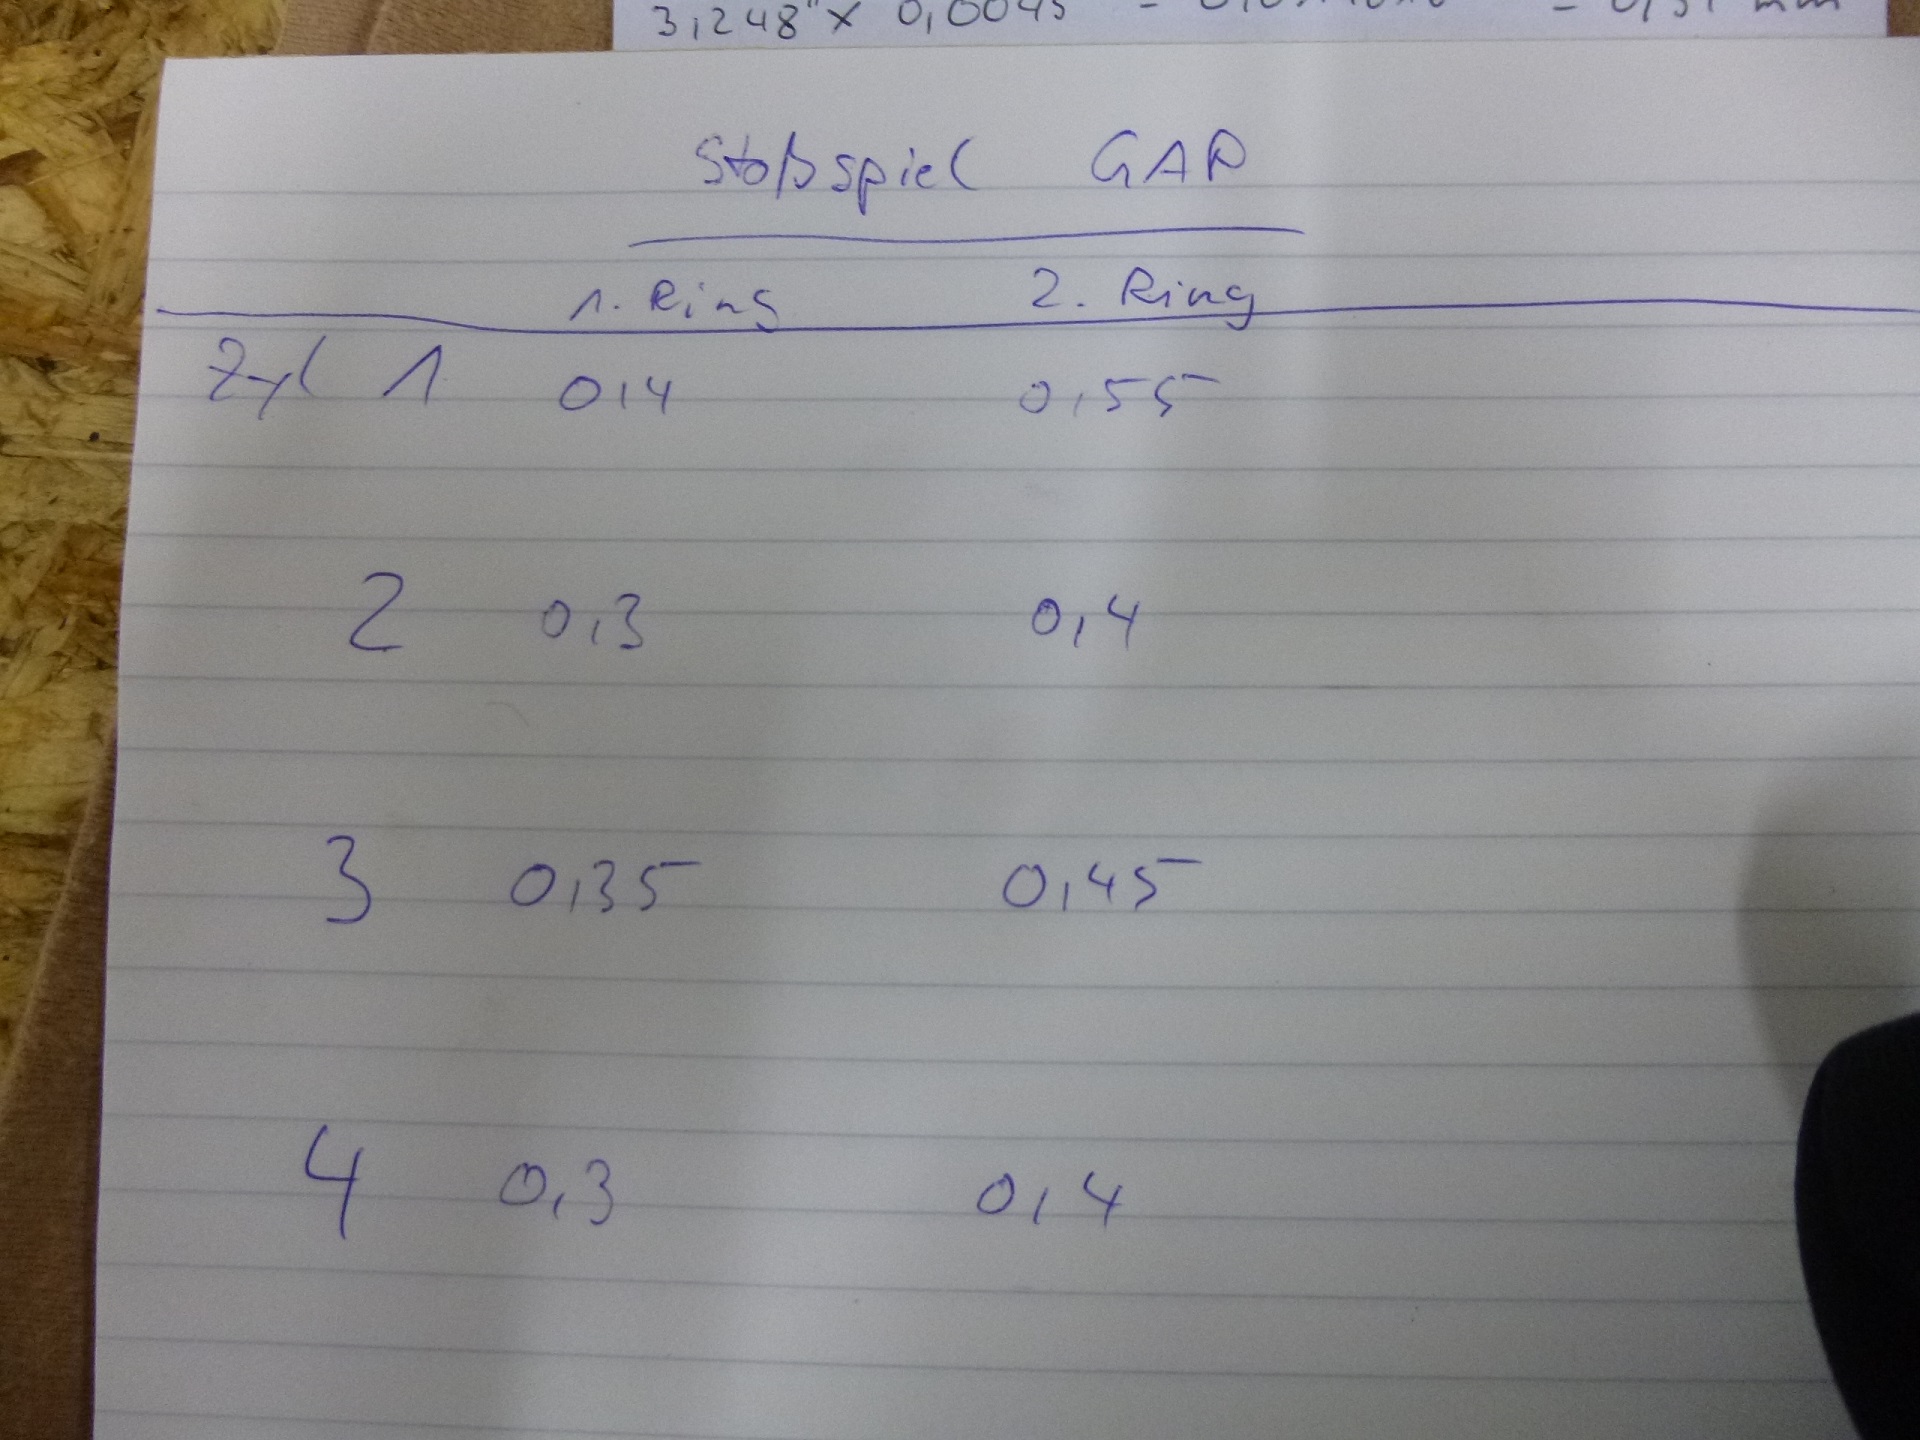 3,248" x 0,0045 = = 0,37 mm
Stoßspiel GAP
1. Ring 2. Ring
Zyl 1 0,4 0,55
2 0,3 0,4
3 0,35 0,45
4 0,3 0,4